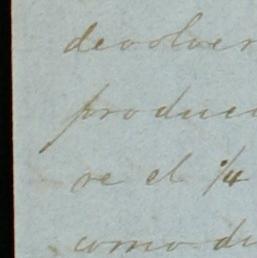 devolver
produci
re el ¼
como du